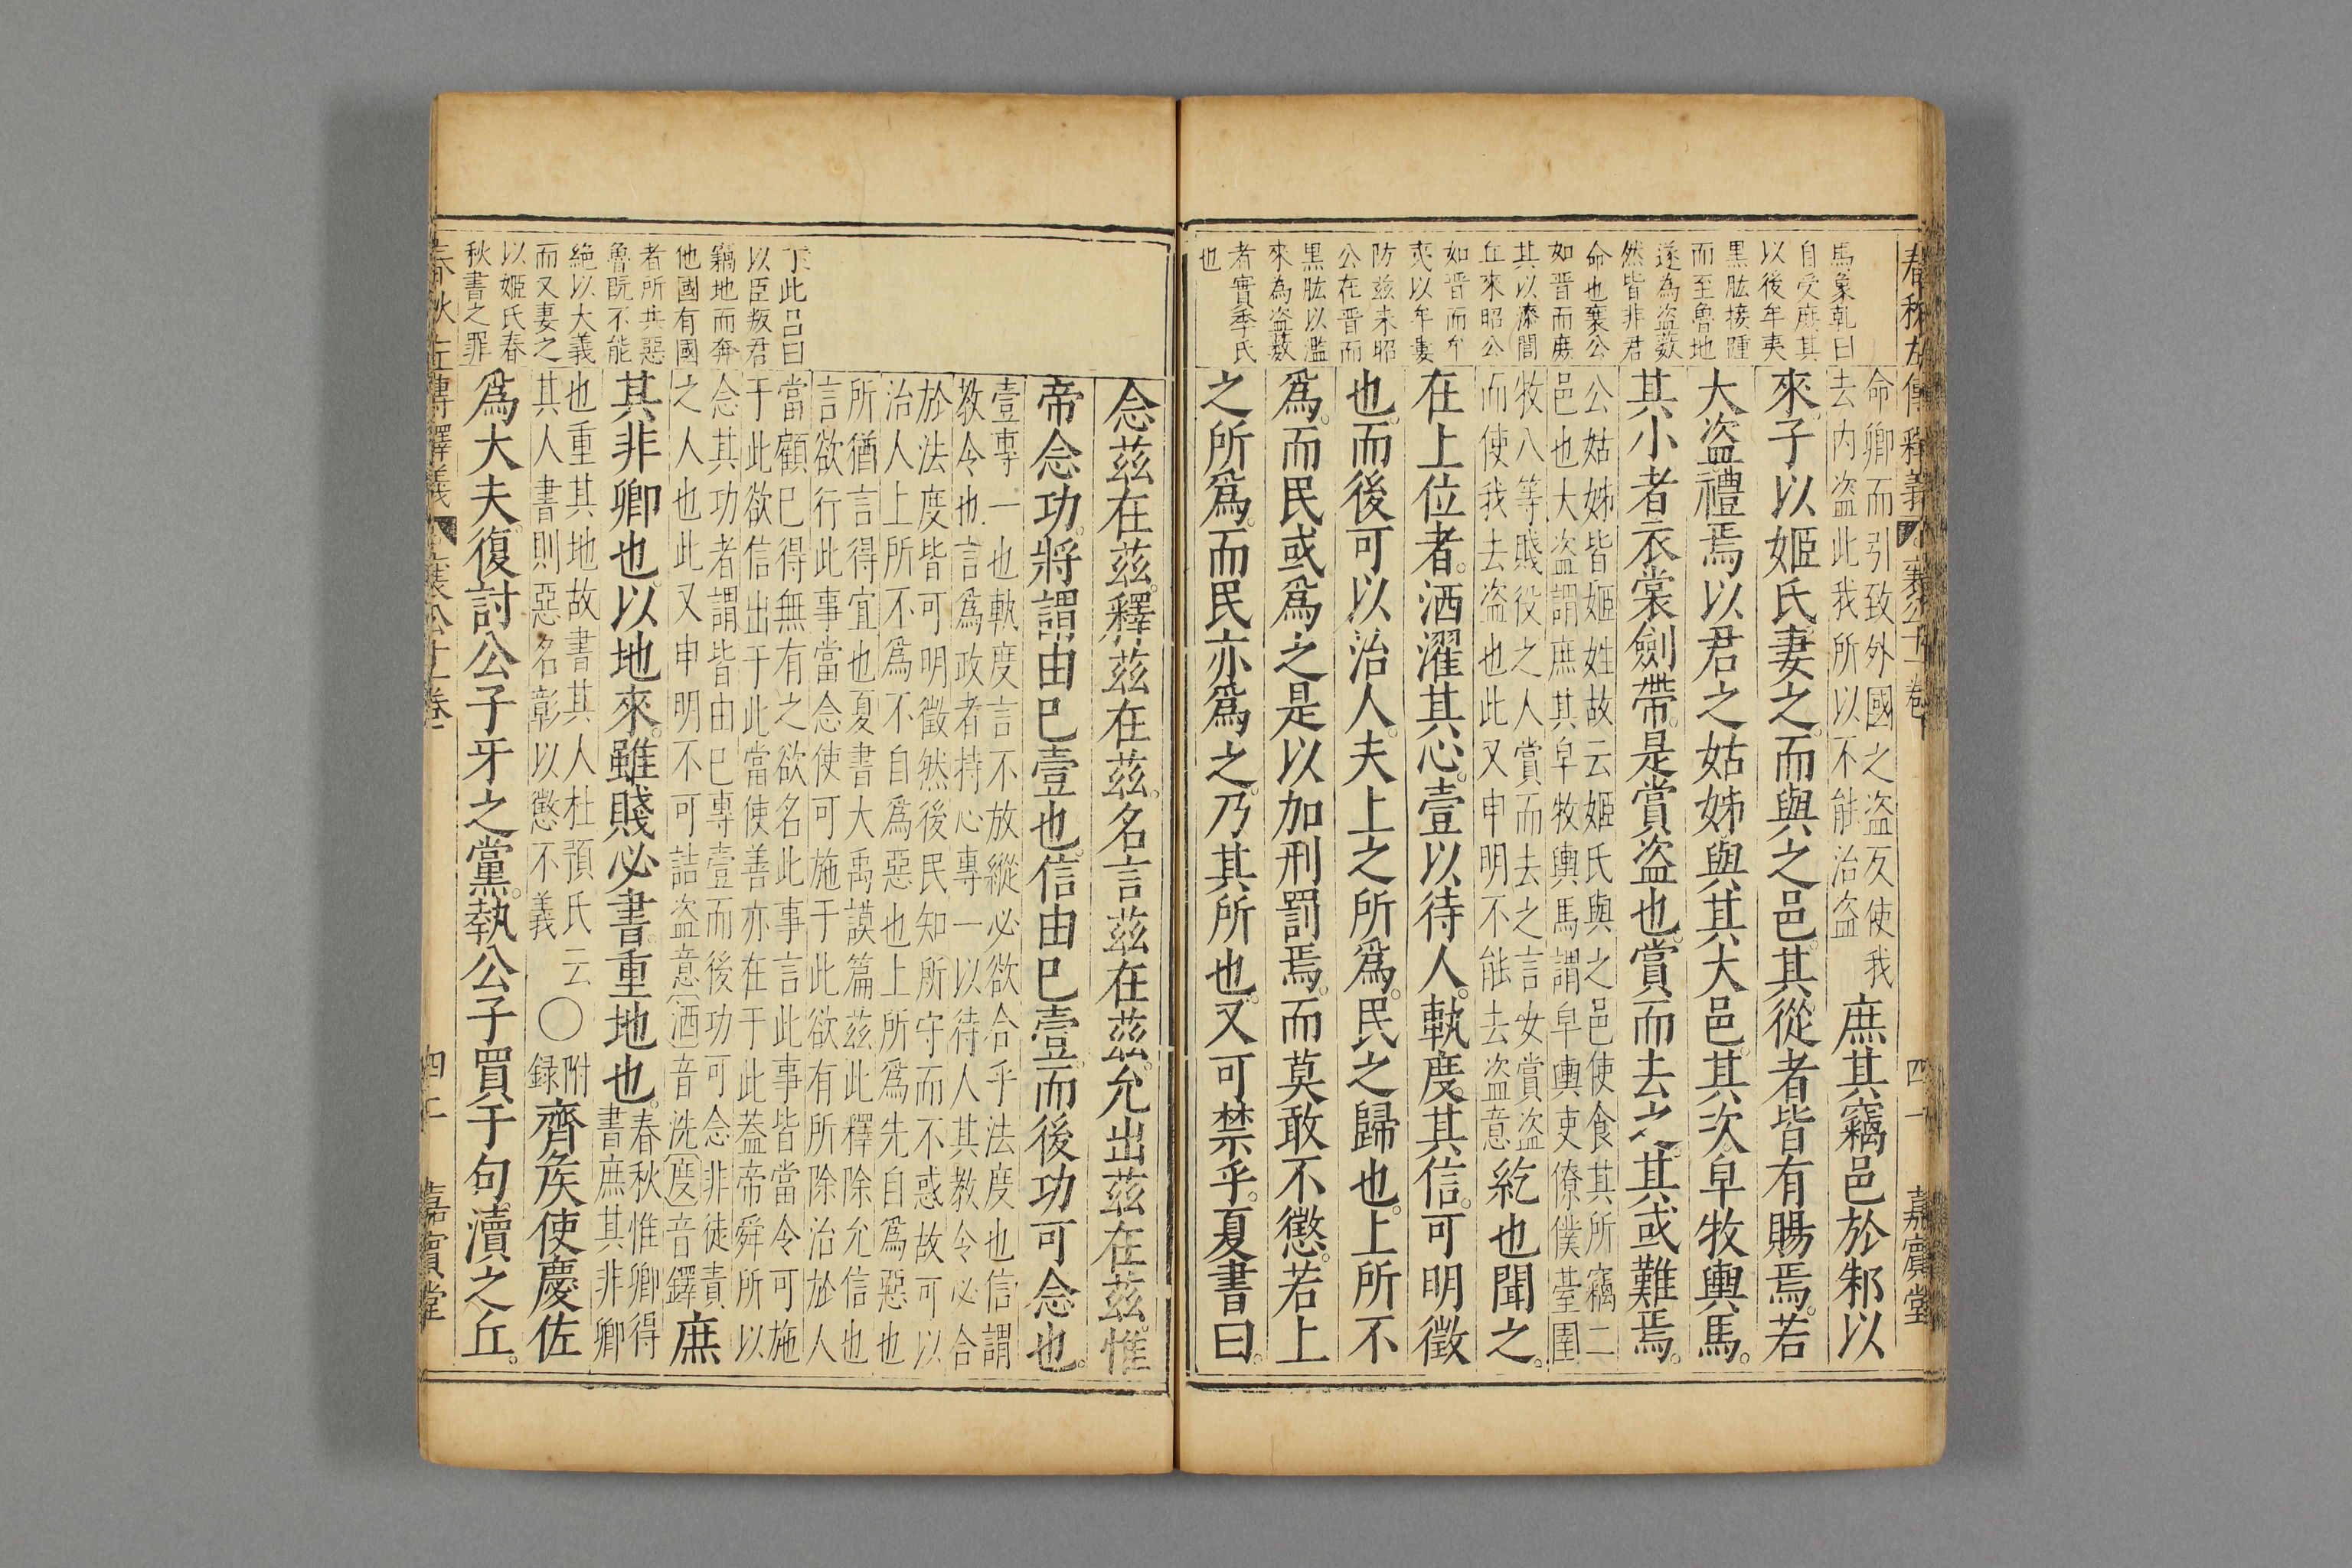 春秋左傳釋義 襄公十一卷 四一 嘉賓堂
馬象乾曰
自受庶其
以後牟夷
黑肱接踵
而至魯地
遂為盗薮
然皆非君
命也襄公
如晋而庶
其以漆閭
丘來昭公
如晋而牟
夷以牟婁
防兹来昭
公在晋而
黒肱以濫
來為盗薮
者實季氏
也
命卿而引致外國之盗反使我
去内盗此我所以不能治盗
庶其竊邑於邾以
來子以姬氏妻之而與之邑其從者皆有賜焉若
大盗禮焉以君之姑姊與其大邑其次皁牧輿馬
其小者衣裳劍帶是賞盗也賞而去之其或難焉
公姑姊皆姬姓故云姬氏與之邑使食其所竊二
邑也大盗謂庶其皁牧輿馬謂皁輿吏僚僕䑓圉
牧八等賤役之人賞而去之言女賞盗
而使我去盗也此又申明不能去盗意
紇也聞之
在上位者洒濯其心壹以待人軌度其信可明徵
也而後可以治人夫上之所爲民之歸也上所不
爲而民或爲之是以加刑罰焉而莫敢不懲若上
之所爲而民亦爲之乃其所也又可禁乎夏書曰
念兹在兹釋兹在兹名言兹在兹允出兹在兹惟
帝念功將謂由巳壹也信由巳壹而後功可念也
壹專一也軌度言不放縱必欲合乎法度也信謂
教令也言爲政者持心專一以待人其教令必合
於法度皆可明徵然後民知所守而不惑故可以
治人上所不爲不自爲惡也上所爲先自爲惡也
所猶言得宜也夏書大禹謨篇兹此釋除允信也
言欲行此事當念使可施于此欲有所除治於人
當顧巳得無有之欲名此事言此事皆當令可施
于此欲信出于此當使善亦在于此葢帝舜所以
念其功者謂皆由巳專壹而後功可念非徒責
之人也此又申明不可詰盗意洒音洗度音鐸
庶
其非卿也以地來雖賤必書重地也
春秋惟卿得
書庶其非卿
也重其地故書其人杜預氏云
其人書則惡名彰以懲不義
○
附
録
齊矦使慶佐
爲大夫復討公子牙之黨執公子買于句瀆之丘
丁此吕曰
以臣叛君
竊地而奔
他國有國
者所共惡
魯既不能
絶以大義
而又妻之
以姬氏春
秋書之罪
春秋左傳釋義 襄公十一卷 四二 嘉賓堂